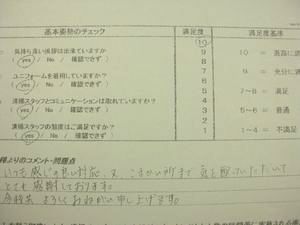 基本姿勢のチェック 満足度 満足度基準
気持ち良い挨拶は出来ていますか
yes / No / 確認できず
ユニフォームを着用していますか?
yes / No / 確認できず
清掃スタッフとコミュニケーションは取れていますか?
yes / No / 確認できず
清掃スタッフの態度はご満足ですか?
yes / No / 確認できず
10
9
8
7
6
5
4
3
2
1
10
9
7~8 = 満足
5~6 = 普通
1~4 = 不満足
様よりのコメント・問題点
いつも感じの良い対応、又、こまかい所まで気を配っていただいて
とても感謝しております。
今後共よろしくおねがい申し上げます。